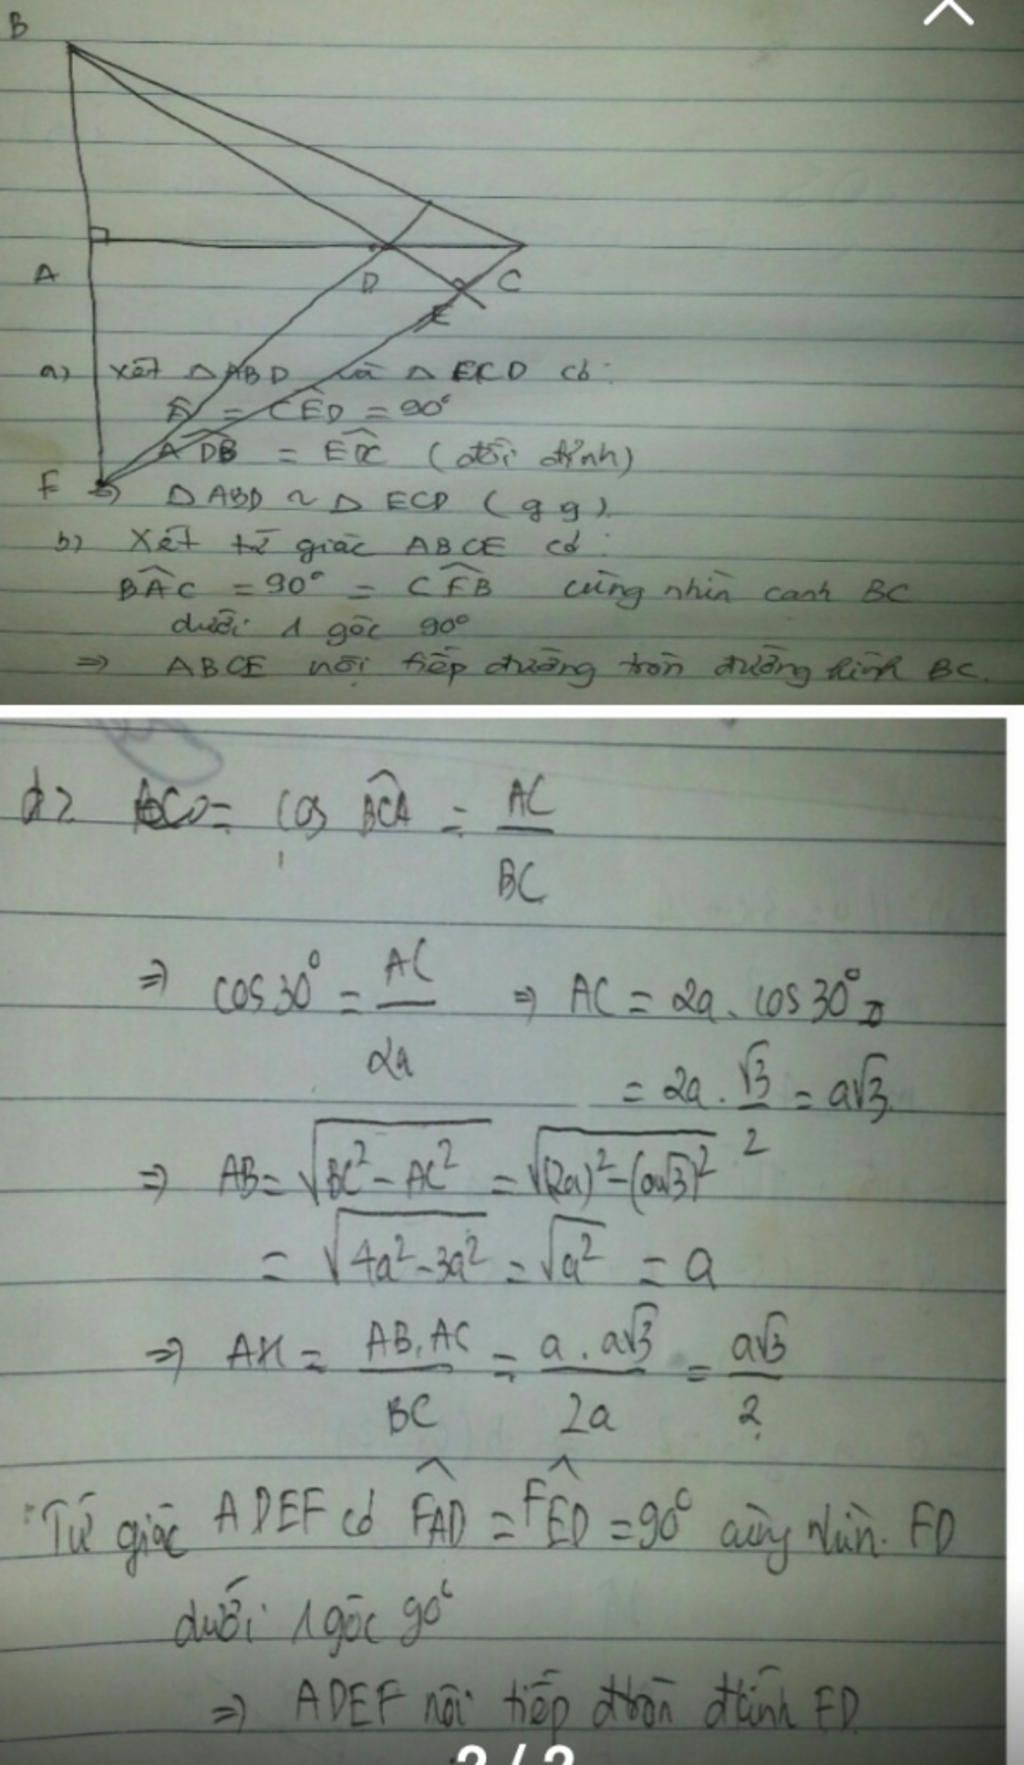 B
A
D
C
E
a) Xét △ABD và △ECD có:
Â = CÊD = 90°
ADB = EDC (đối đỉnh)
F ⇒ △ABD ~ △ECD (gg)
b) Xét tứ giác ABCE có:
BAC = 90° = CEB cùng nhìn cạnh BC
dưới 1 góc 90°
⇒ ABCE nội tiếp đường tròn đường kính BC.
d) cos BCA = AC/BC
⇒ cos30° = AC/2a ⇒ AC = 2a. cos30°
= 2a . √3/2 = a√3
⇒ AB = √(BC² - AC²) = √((2a)² - (a√3)²)
= √(4a² - 3a²) = √(a²) = a
⇒ AH = AB.AC/BC = a . a√3/2a = a√3/2
Tứ giác ADEF có FAD = FED = 90° cùng nhìn FD
dưới 1 góc 90°
⇒ ADEF nội tiếp đtròn đkính FD
2/2